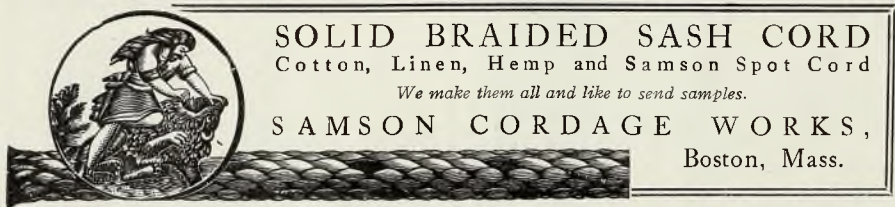 SOLID BRAIDED SASH CORD
Cotton, Linen, Hemp and Samson Spot Cord
We make them all and like to send samples.
SAMSON CORDAGE WORKS,
Boston, Mass.